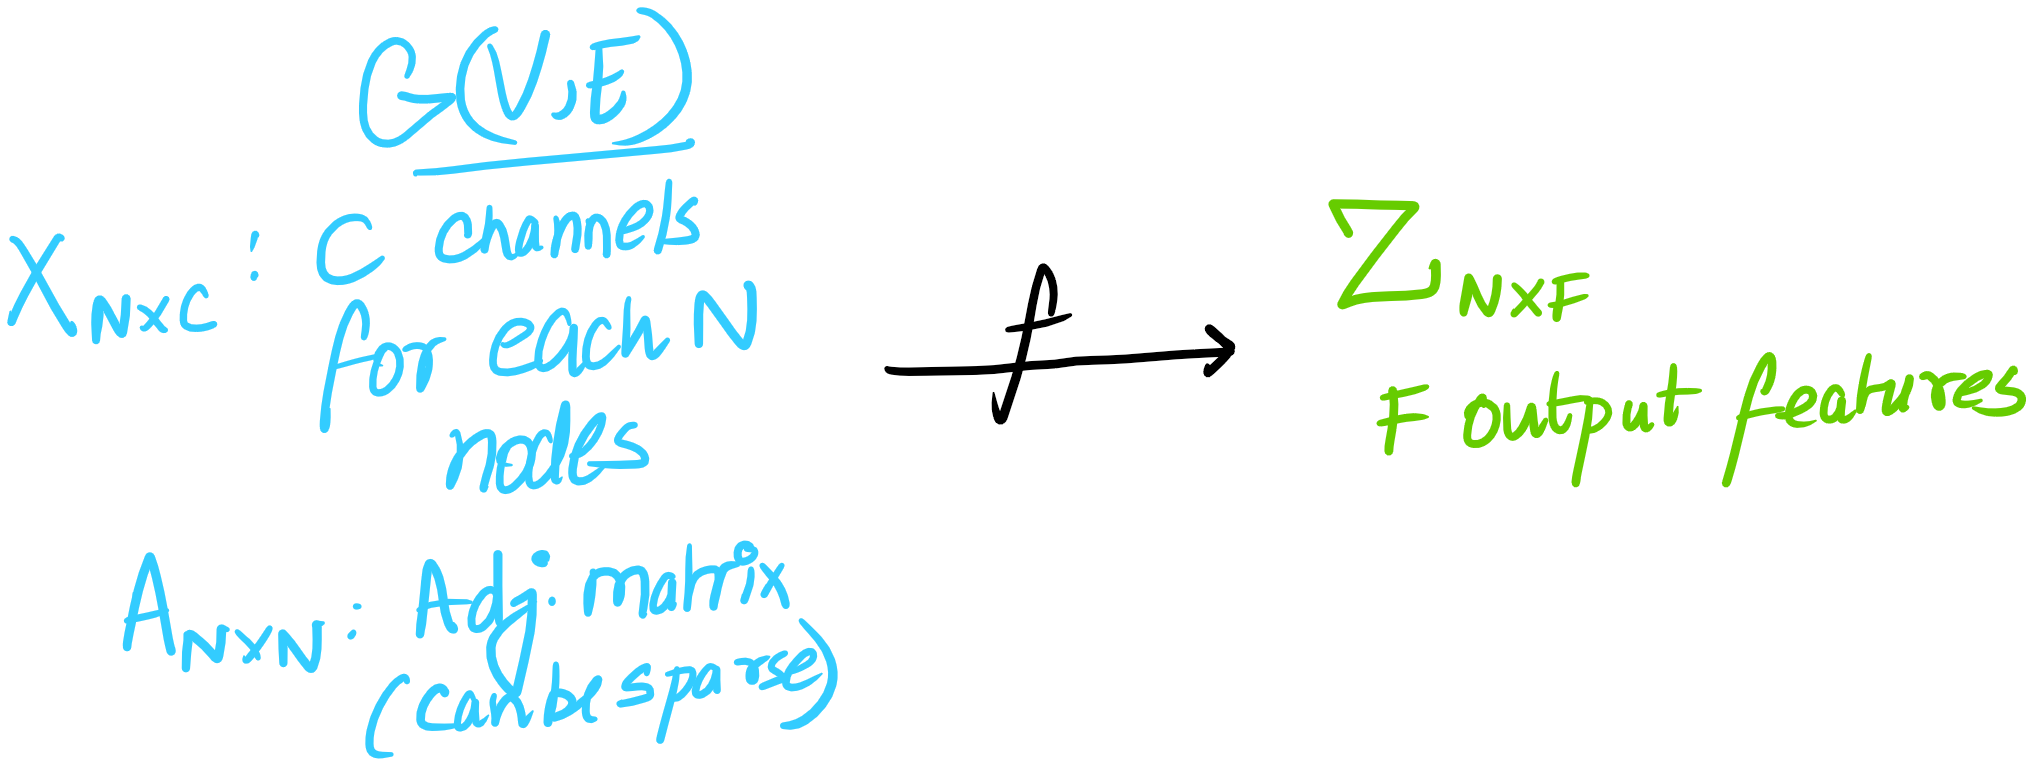 G(V,E)
X NxC : C channels
for each N
nodes
A NXN : Adj. matrix
(can be sparse)
f
Z NXF
F output features